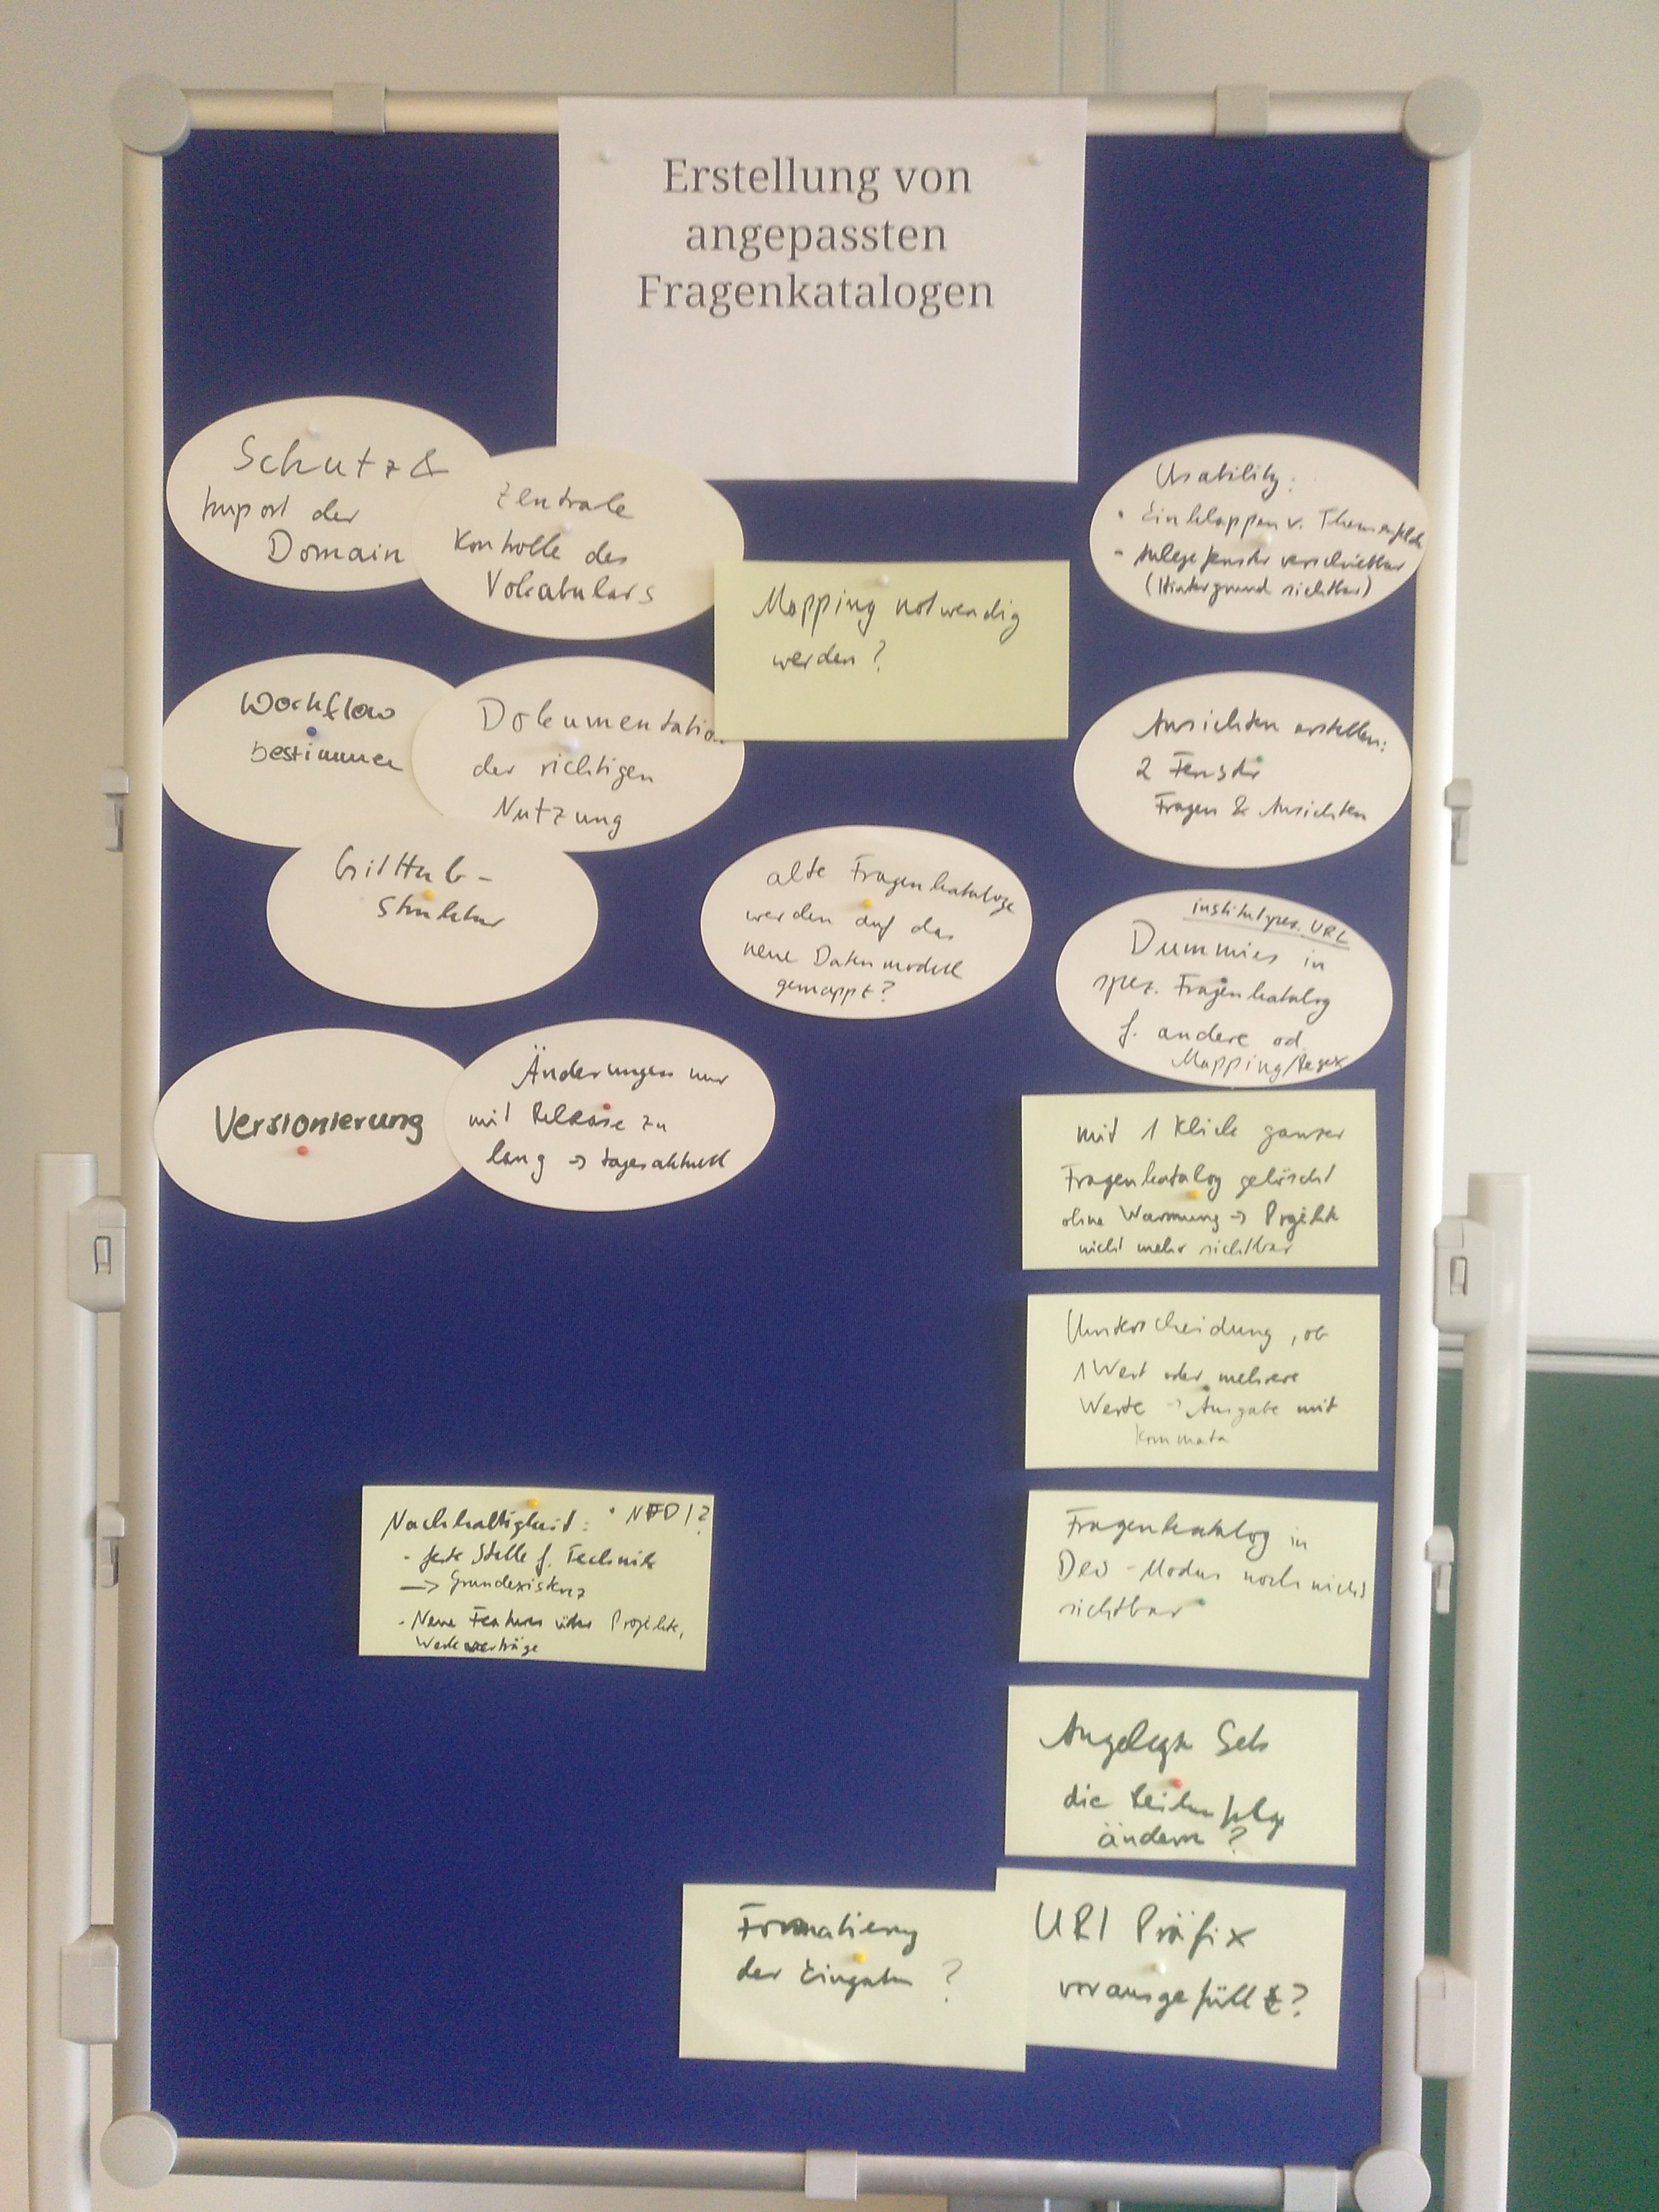 Erstellung von
angepassten
Fragenkatalogen
Schutz &
Import der
Domain
Zentrale
Kontrolle des
Vokabulars
Mapping notwendig
werden?
Usability:
• Einklappen v. Themenfelder
- Anlegefenster verschiebbar
(Hintergrund sichtbar)
Workflow
bestimmen
Dokumentation
der richtigen
Nutzung
Ansichten erstellen:
2 Fenster
Fragen & Ansichten
GitHub-
Struktur
alte Fragenkataloge
werden auf das
neue Datenmodell
gemappt?
URL
Dummies in
spez. Fragenkatalog
f. andere od.
Mapping/Regex
Versionierung
Änderungen nur
mit Release zu
lang → tagesaktuell
mit 1 Klick ganzer
Fragenkatalog gelöscht
ohne Warnung → Projekte
nicht mehr sichtbar
Unterscheidung, ob
1 Wert oder mehrere
Werte → Ausgabe mit
Kommata
Nachhaltigkeit: • NFDI?
- feste Stelle f. Technik
→ Grundexistenz
- Neue Features über Projekte,
Werkverträge
Fragenkatalog in
Dev-Modus noch nicht
sichtbar
Angelegte Sets
die Reihenfolge
ändern?
Formatierung
der Eingaben ?
URI Präfix
vorausgefüllt?